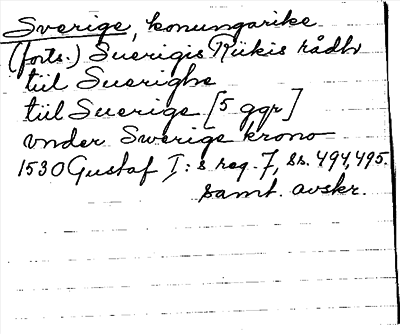 Sverige, konungarike
(forts.) Suerigis Rikis rådh
tiil Suerighe
tiil Suerige [5 ggr]
vnder Swerige krono
1530 Gustaf I:s reg. 7, ss. 494, 495.
samt. avskr.